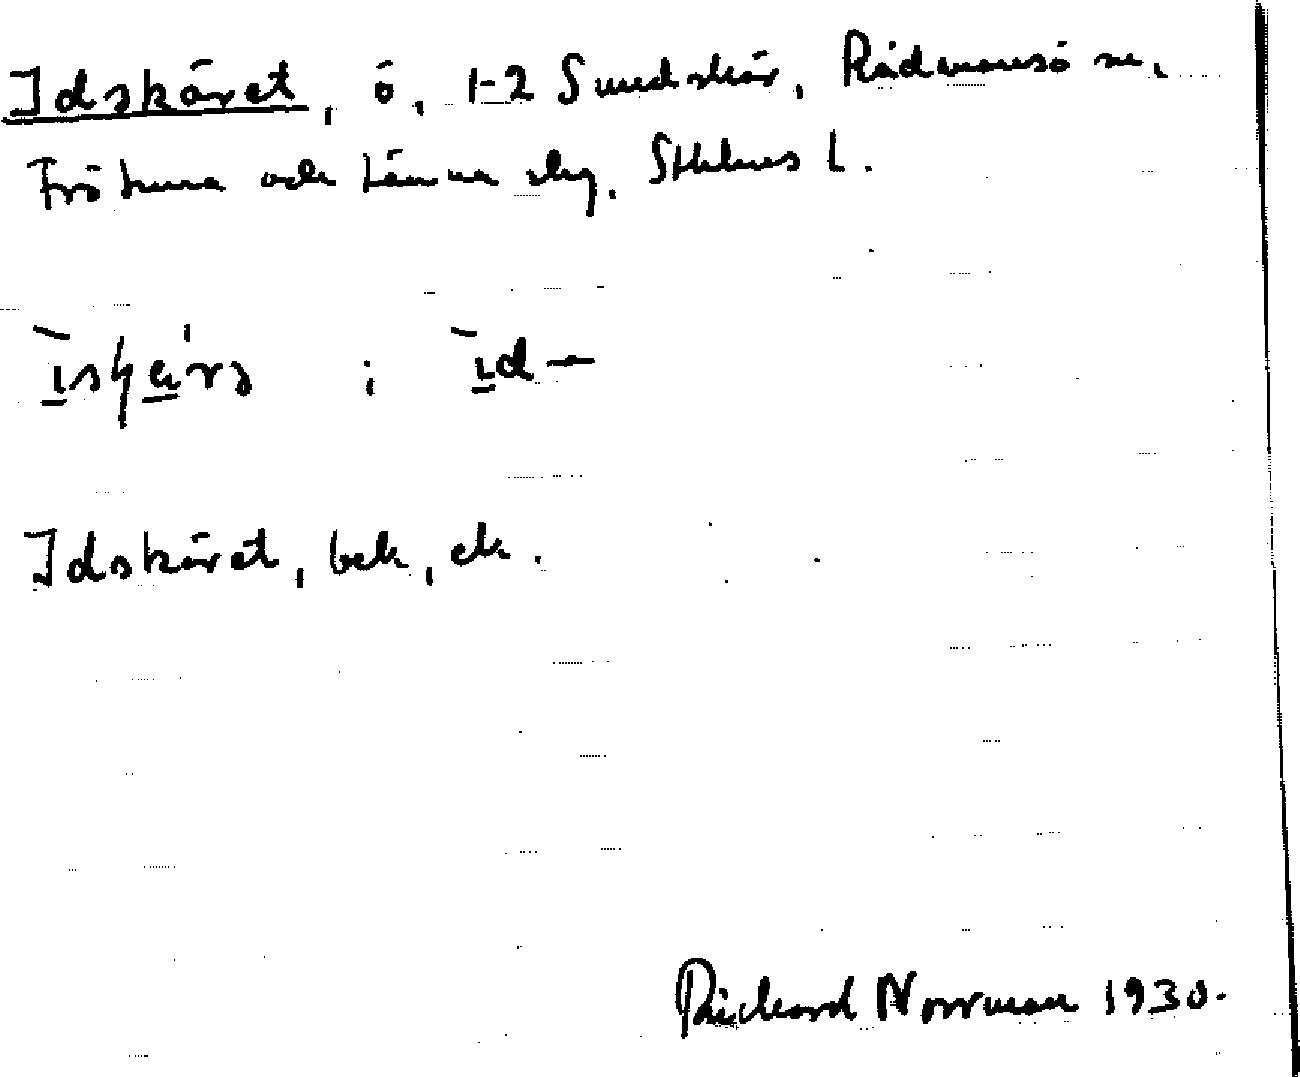 Idskäret, ö, 1-2 Sundskär, Rådmansö sn.
Frötuna och Länna skg. Sthlms l.
i
Idskäret, bek, ek.
Richard Norrman 1930.